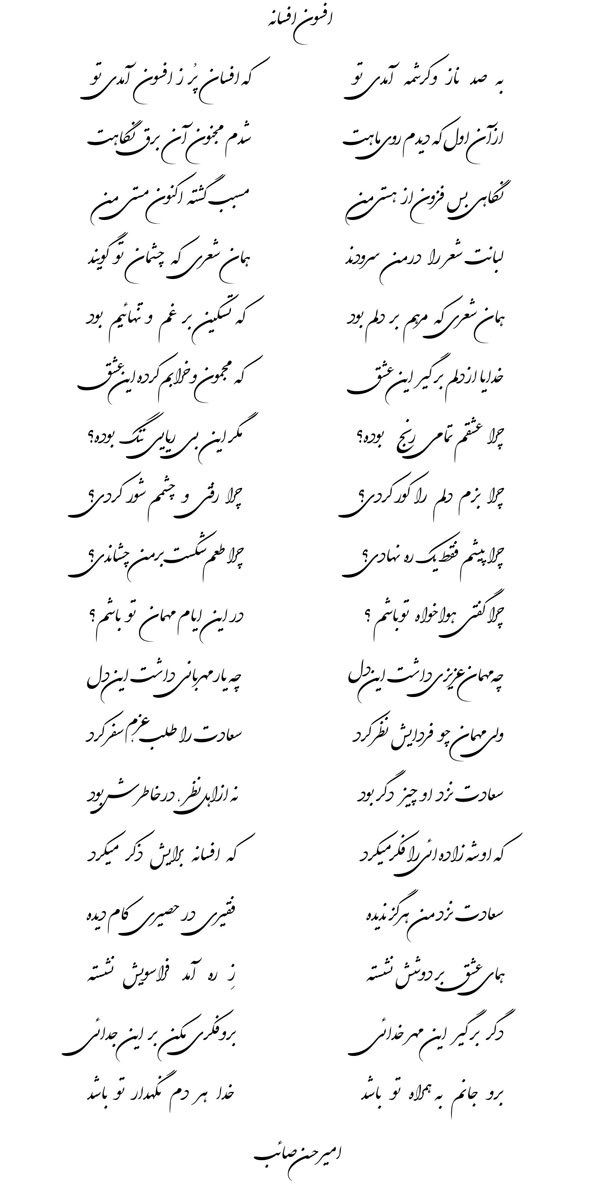 افسون افسانه
به صد ناز و کرشمه آمدی تو که افسان پُر ز افسون آمدی تو
از آن اول که دیدم روی ماهت شدم مجنون آن برق نگاهت
نگاهی بس فزون از هستی من مسبب گشته اکنون مستی من
لبانت شعر را در من سرودند همان شعری که چشمان تو گویند
همان شعری که مرهم بر دلم بود که تسکین بر غم و تنهائیم بود
خدایا از دلم برگیر این عشق که مجنون و خرابم کرده این عشق
چرا عشقم تمامی رنج بوده؟ مگر این بی ریایی ننگ بوده؟
چرا بزم دلم را کور کردی؟ چرا رفتی و چشمم شور کردی؟
چرا پیشم فقط یک ره نهادی؟ چرا طعم شکست بر من چشاندی؟
چرا گفتی هواخواه تو باشم ؟ در این ایام مهمان تو باشم ؟
چه مهمان عزیزی داشت این دل چه یار مهربانی داشت این دل
ولی مهمان چو فردایش نظر کرد سعادت را طلب عزم سفر کرد
سعادت نزد او چیز دگر بود نه از اهل نظر، در خاطرش بود
که او شه زاده ائی را فکر میکرد که افسانه برایش ذکر میکرد
سعادت نزد من هرگز ندیده فقیری در حصیری کام دیده
همای عشق بر دوشش نشسته زِ ره آمد فراسویش نشسته
دگر برگیر این مهر خدائی برو فکری مکن بر این جدائی
برو جانم به همراه تو باشد خدا هر دم نگهدار تو باشد
امیرحسن صائب